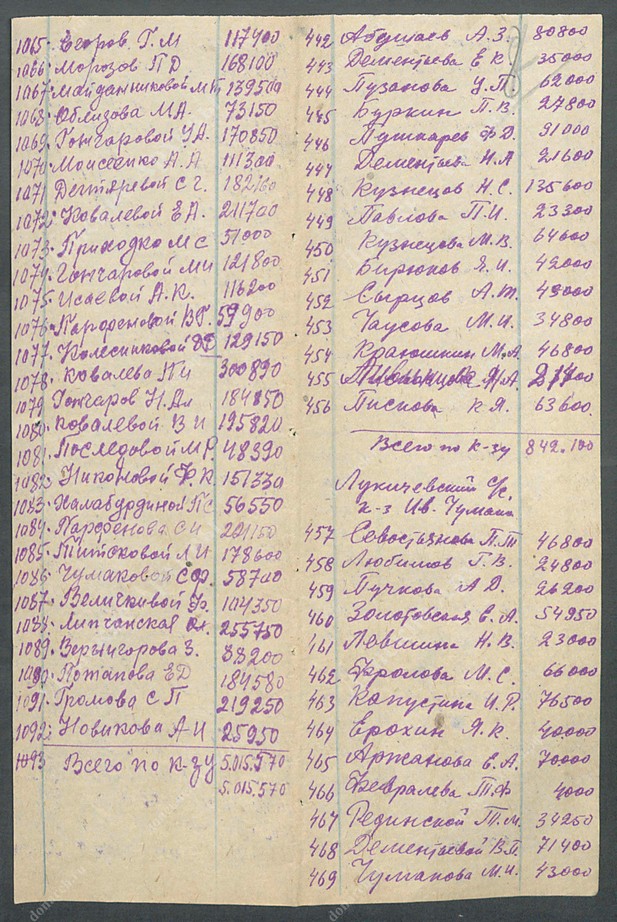 1065. Егоров. Г. М 117400
1066. Морозов П Д 168100
1067. Майданниковой М П 139500
1068. Облизова М А. 73150
1069. Гончаровой У А. 170850
1070. Моисеенко А. А 111300
1071. Дегтяревой С г. 182760
1072. Ковалевой Е А. 211700
1073. Приходко М С 51000
1074. Гончаровой М и 121800
1075. Исаевой А. К. 116200
1076. Парфеновой В Г. 59900
1077. Колесниковой 129150
1078. Ковалева П и 300890
1079. Гончаров Н. 184850
1080. Ковалевой В И 195820
1081. Последовой М Р 48390
1082. Никоновой Ф. К 151330
1083. П С 56550
1084. Парфенова С И 201150
1085. Титаковой Л И 178600
1086. Чумаковой С Ф 58700
1087. Величковой Ф. 104350
1088. Липчанская 255750
1089. Вернигорова З. 88200
1090. Потапова Е Д 184580
1091. Громова С П 219250
1092. Новикова А И 25950
1093 Всего по к-зу 5.015.570
5.015.570
442 А. З. 80800
443 Дементьева Е К. 35000
444 Пузанова У. П. 62000
445 Буркин П. В. 27800
446 Пушкарев Ф. Д. 91000
447 Дементьева Н. А 21600
448 Кузнецов Н. С. 135600
449 Павлова П. И. 23300
450 Кузнецова М. В. 64600
451 Бирюков Я. И. 42000
452 Сырцов А. Т. 49000
453 Чаусова М. И. 34800
454 Краюшкин М. А. 46800
455 А.
456 Пискова К Я. 63600.
Всего по к-зу 842.100
Лукичевский с/с.
к-з Ив. Чумака
457 Севостьянова П. Т 46800
458 Любимов Г. В. 24800
459 Пучкова А Д. 26200
460 Золотовская Е. А. 54950
461 Левшина Н. В. 23000
462 Фролова М. С. 66000
463 Капустина И. Р. 76500
464 Ерохин Я. К. 40000
465 Аржанова Е. А. 70000
466 Февралева Т. Ф 4000
467 Рединской Т. М. 34250
468 Дементьевой В. П. 71400
469 Чумакова М. И. 43000